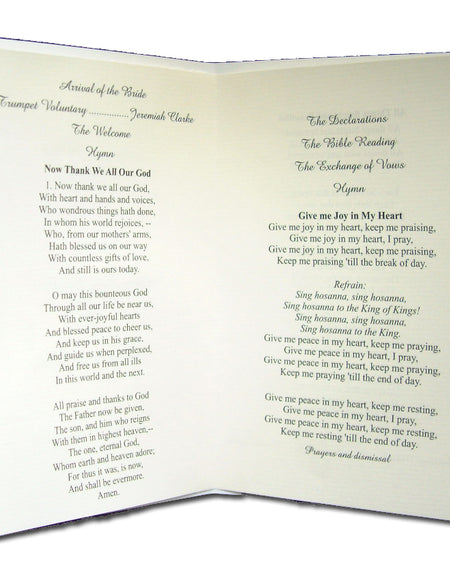 Arrival of the Bride
Trumpet Voluntary ............... Jeremiah Clarke
The Welcome
Hymn
Now Thank We All Our God
1. Now thank we all our God,
With heart and hands and voices,
Who wondrous things hath done,
In whom his world rejoices, --
Who, from our mothers' arms,
Hath blessed us on our way
With countless gifts of love,
And still is ours today.
O may this bounteous God
Through all our life be near us,
With ever-joyful hearts
And blessed peace to cheer us,
And keep us in his grace,
And guide us when perplexed,
And free us from all ills
In this world and the next.
All praise and thanks to God
The Father now be given,
The son, and him who reigns
With them in highest heaven,--
The one, eternal God,
Whom earth and heaven adore;
For thus it was, is now,
And shall be evermore.
Amen.
The Declarations
The Bible Reading
The Exchange of Vows
Hymn
Give me Joy in My Heart
Give me joy in my heart, keep me praising,
Give me joy in my heart, I pray,
Give me joy in my heart, keep me praising,
Keep me praising 'till the break of day.
Refrain:
Sing hosanna, sing hosanna,
Sing hosanna to the King of Kings!
Sing hosanna, sing hosanna,
Sing hosanna to the King.
Give me peace in my heart, keep me praying,
Give me peace in my heart, I pray,
Give me peace in my heart, keep me praying,
Keep me praying 'till the end of day.
Give me peace in my heart, keep me resting,
Give me peace in my heart, I pray,
Give me peace in my heart, keep me resting,
Keep me resting 'till the end of day.
Prayers and dismissal